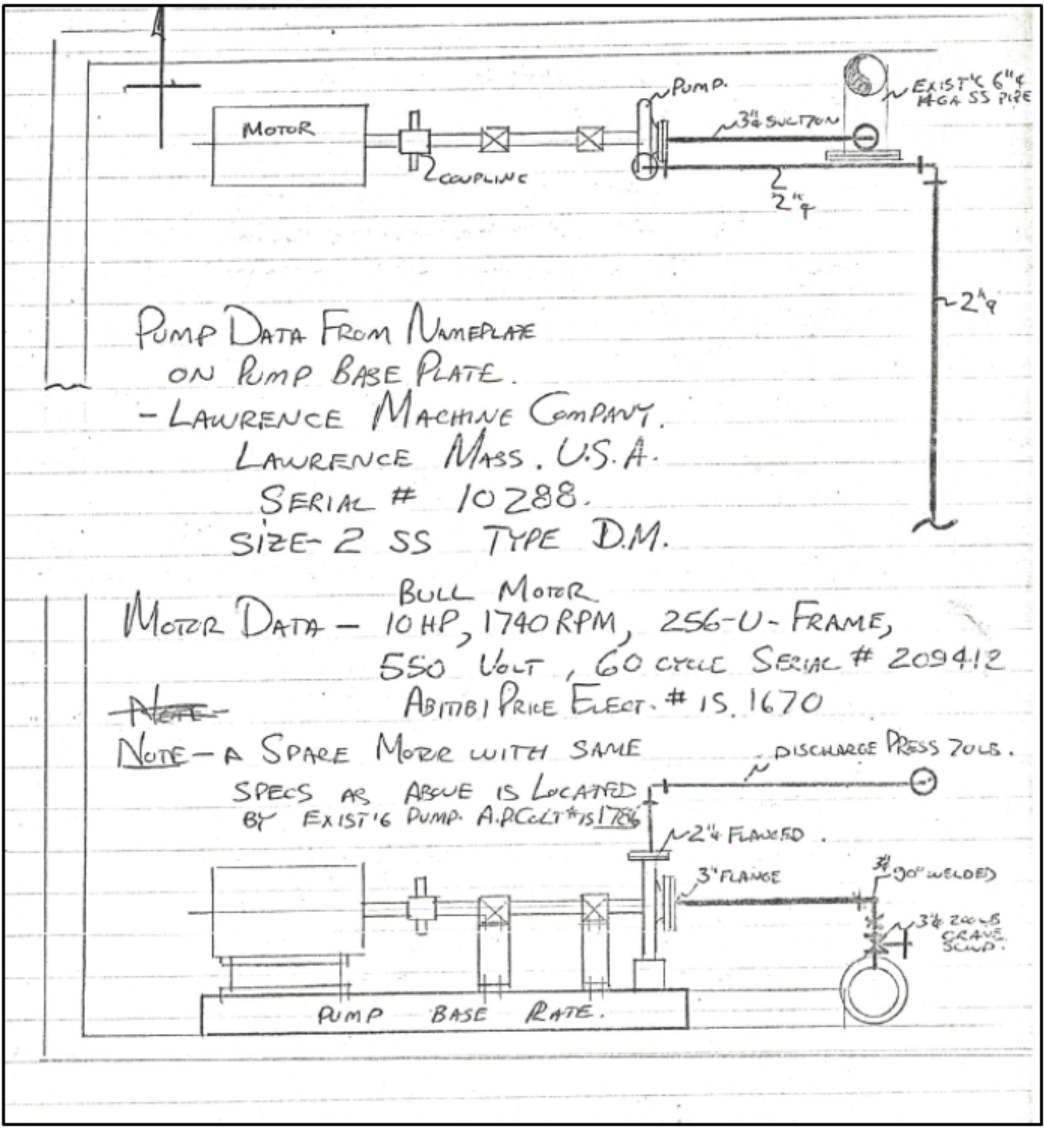 PUMP.
EXIST'G 6"φ
14GA SS PIPE
MOTOR
3"φ SUCTION
COUPLING
2"φ
2"φ
PUMP DATA FROM NAMEPLATE
ON PUMP BASE PLATE.
- LAWRENCE MACHINE COMPANY.
LAWRENCE MASS. U.S.A.
SERIAL # 10288.
SIZE- 2 SS TYPE D.M.
BULL MOTOR
MOTOR DATA - 10 HP, 1740 RPM, 256-U-FRAME,
550 VOLT, 60 CYCLE SERIAL # 209412
ABITIBI PRICE ELECT. # IS. 1670
NOTE
NOTE - A SPARE MOTOR WITH SAME
DISCHARGE PRESS 70LB.
SPECS AS ABOVE IS LOCATED
BY EXIST'G PUMP. # IS 1786
2"φ FLANGED.
3" FLANGE
3"φ 90° WELDED
3"φ 200LB
CRANE
PUMP BASE PLATE.